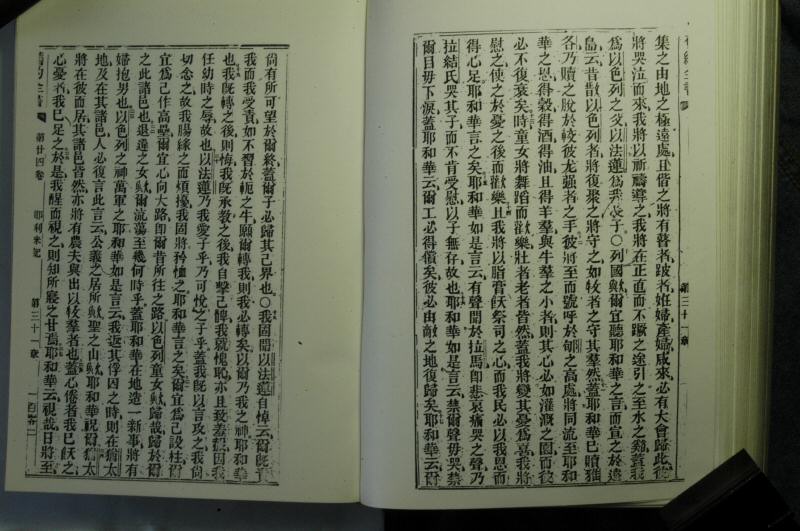 舊約全書
第三十一章
集之由地之極遠處且偕之將有瞽者跛者姙婦產婦咸來必有大會歸此彼
將哭泣而來我將以祈禱導之我將在正直而不蹶之途引之至水之谿蓋我
爲以色列之父以法蓮爲我長子〇列國歟爾宜聽耶和華之言而宣之於遠
島云昔散以色列者將復聚之將守之如牧者之守其羣然蓋耶和華已贖雅
各乃贖之脫於較彼尤强者之手彼將至而號呼於郇之高處將同流至耶和
華之恩得穀得酒得油且得羊羣與牛羣之小者則其心必如灌溉之園而彼
必不復衰矣時童女將舞蹈而歡樂壯者老者皆然蓋我將變其憂爲喜我將
慰之使之於憂之後而歡樂且我將以脂膏飫祭司之心而我民必以我恩而
得心足耶和華言之矣耶和華如是言云有聲聞於拉馬卽悲哀痛哭之聲乃
拉結氏哭其子而不肯受慰以子無存故也耶和華如是言云禁爾聲毋哭禁
爾目毋下淚蓋耶和華云爾工必得償矣彼必由敵之地復歸矣耶和華云爾
尙有所可望於爾終蓋爾子必歸其己界也〇我固聞以法蓮自悼云爾旣責
我而我受責如不習於軛之牛願爾轉我則我必轉矣以爾乃我之神耶和華
也我旣轉之後則悔我旣承敎之後我自擊己髀我就愧恥亦且致羞慍因我
任幼時之辱故也以法蓮乃我愛子乎乃可悅之子乎蓋我旣以言攻之我尙
切念之故我腸緣之而煩擾我固將矜恤之耶和華言之矣爾宜爲己設柱爾
宜爲己作高壘爾宜心向大路卽爾昔所往之路以色列童女歟歸哉歸於爾
之此諸邑也退違之女歟爾流蕩至幾何時乎蓋耶和華在地造一新事將有
婦抱男也以色列之神萬軍之耶和華如是言云我返其俘囚之時則在猶太
地及在其諸邑人必復言此言云公義之居所歟聖之山歟耶和華祝爾猶太
將在彼而居其諸邑皆然亦將有農夫與出以牧羣者也蓋心倦者我已飫之
心憂者我已足之於是我醒而視之則知所寢之甘焉耶和華云視哉日將至
舊約全書
第廿四卷
耶利米記
第三十一章